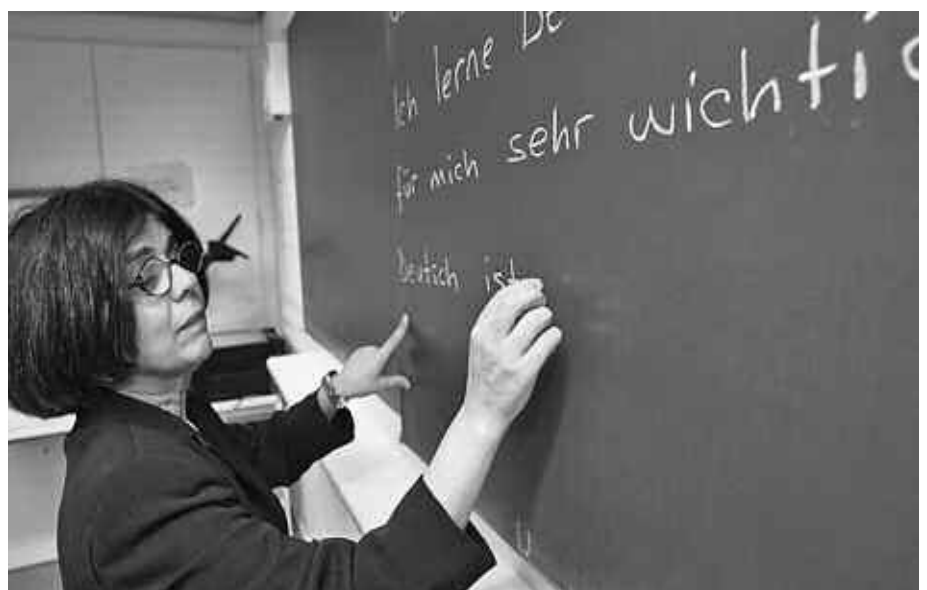 Ich lerne De
für mich sehr wichtig
Deutich ist